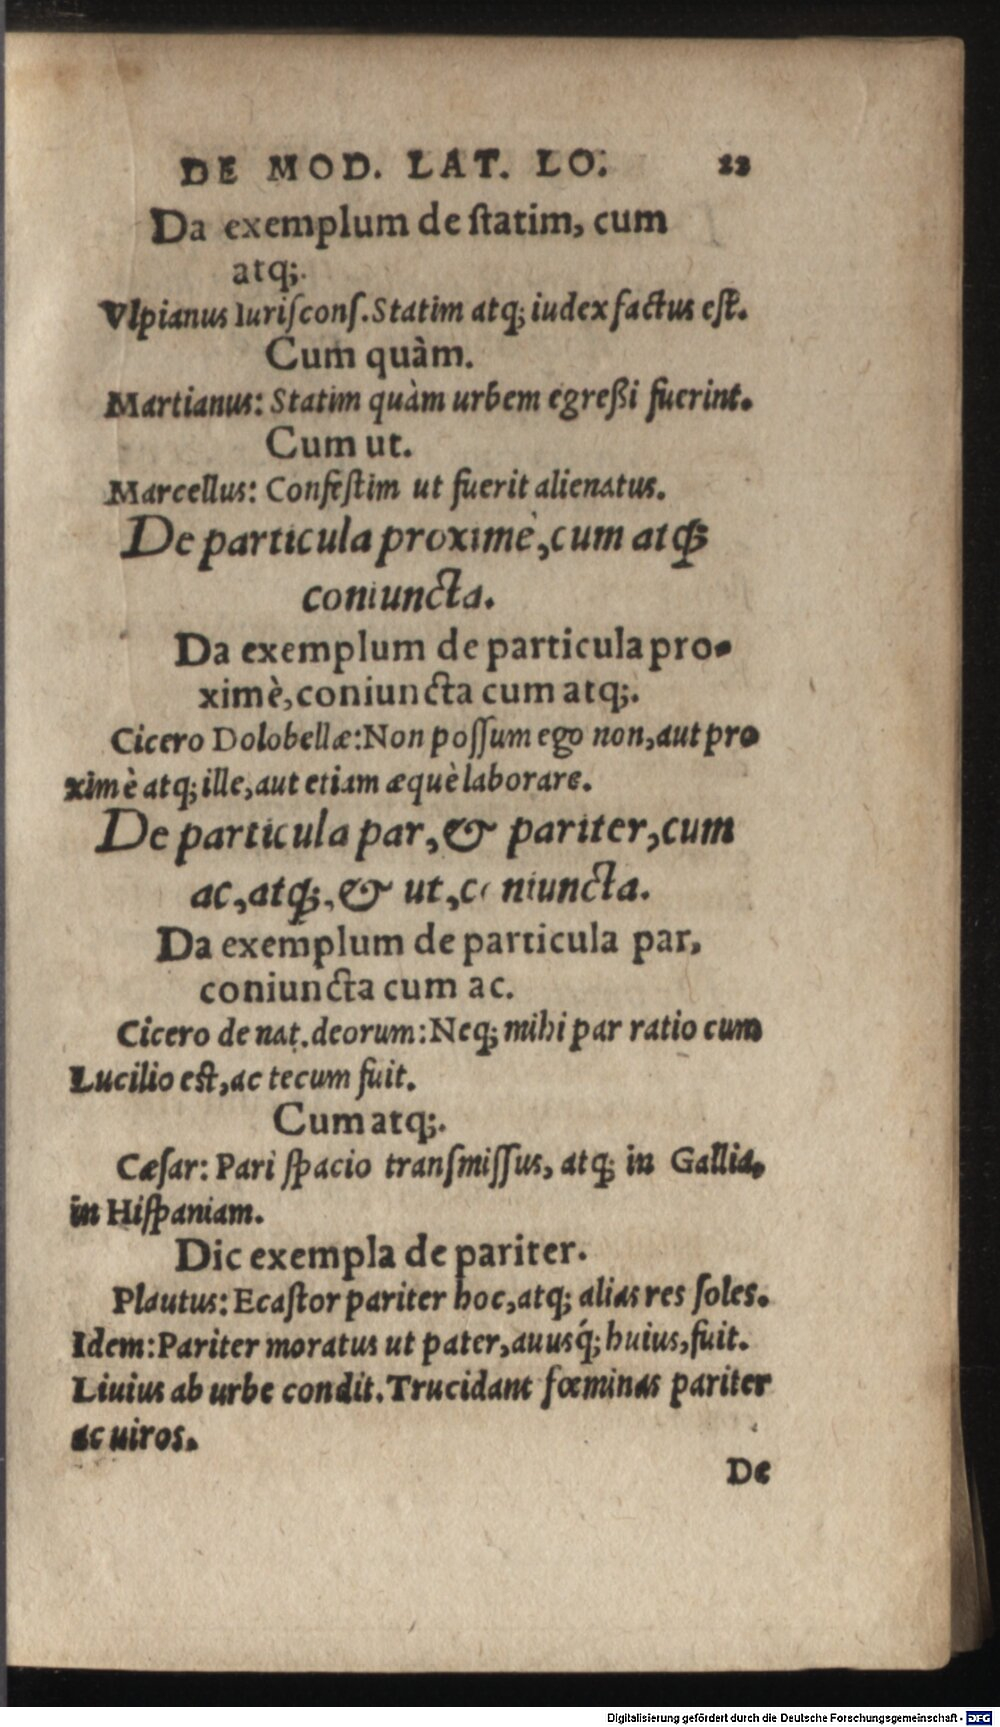 DE MOD. LAT. LO. 22
Da exemplum de ſtatim, cum
atq;.
Vlpianus Iuriſconſ. Statim atq; iudex factus eſt.
Cum quàm.
Martianus: Statim quàm urbem egreßi fuerint.
Cum ut.
Marcellus: Confeſtim ut fuerit alienatus.
De particula proximè, cum atq;
coniuncta.
Da exemplum de particula pro-
ximè, coniuncta cum atq;.
Cicero Dolobellæ: Non poſſum ego non, aut pro
ximè atq; ille, aut etiam æquè laborare.
De particula par, & pariter, cum
ac, atq;, & ut, coniuncta.
Da exemplum de particula par,
coniuncta cum ac.
Cicero de nat. deorum: Neq; mihi par ratio cum
Lucilio eſt, ac tecum fuit.
Cum atq;.
Cæſar: Pari ſpacio tranſmiſſus, atq; in Gallia,
in Hiſpaniam.
Dic exempla de pariter.
Plautus: Ecaſtor pariter hoc, atq; alias res ſoles.
Idem: Pariter moratus ut pater, auusq́; huius, fuit.
Liuius ab urbe condit. Trucidant fœminas pariter
ac uiros.
De
Digitalisierung gefördert durch die Deutsche Forschungsgemeinschaft - DFG